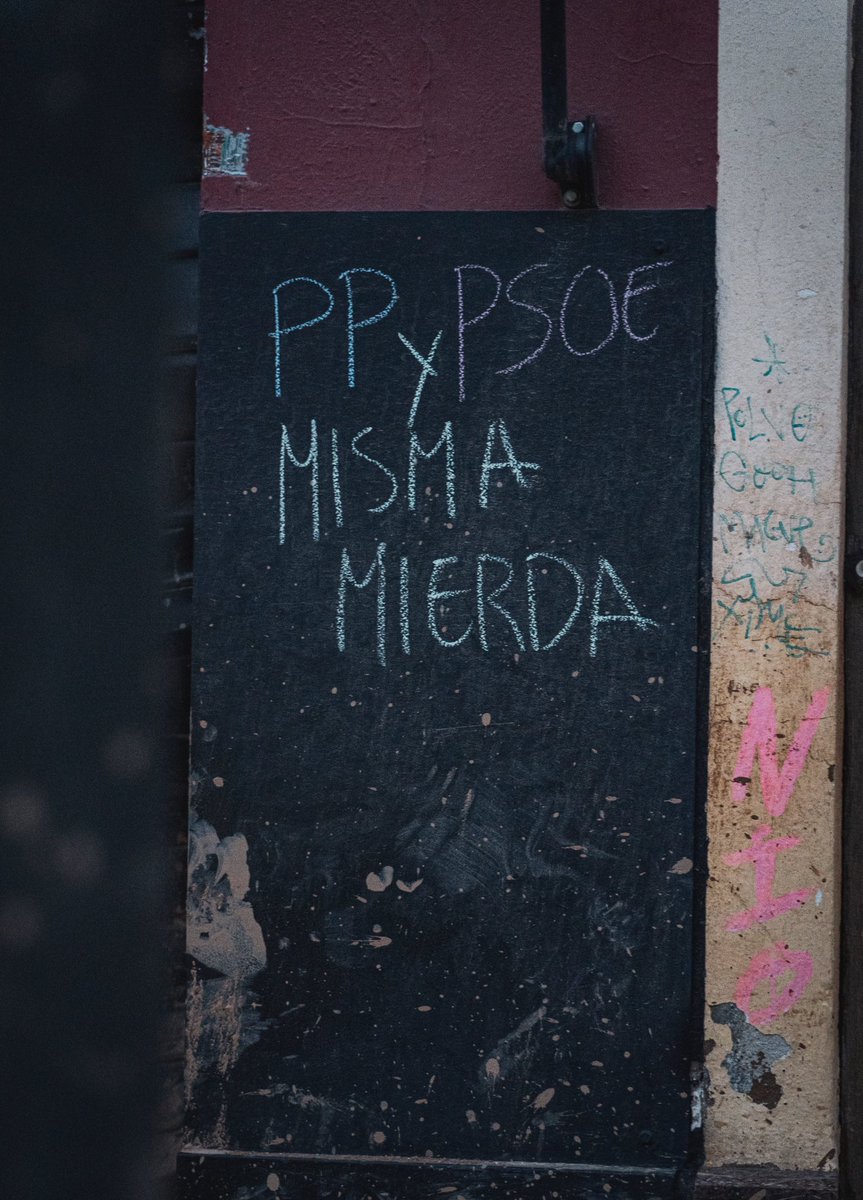 PP y PSOE
MISMA
MIERDA
POLVE
NIO